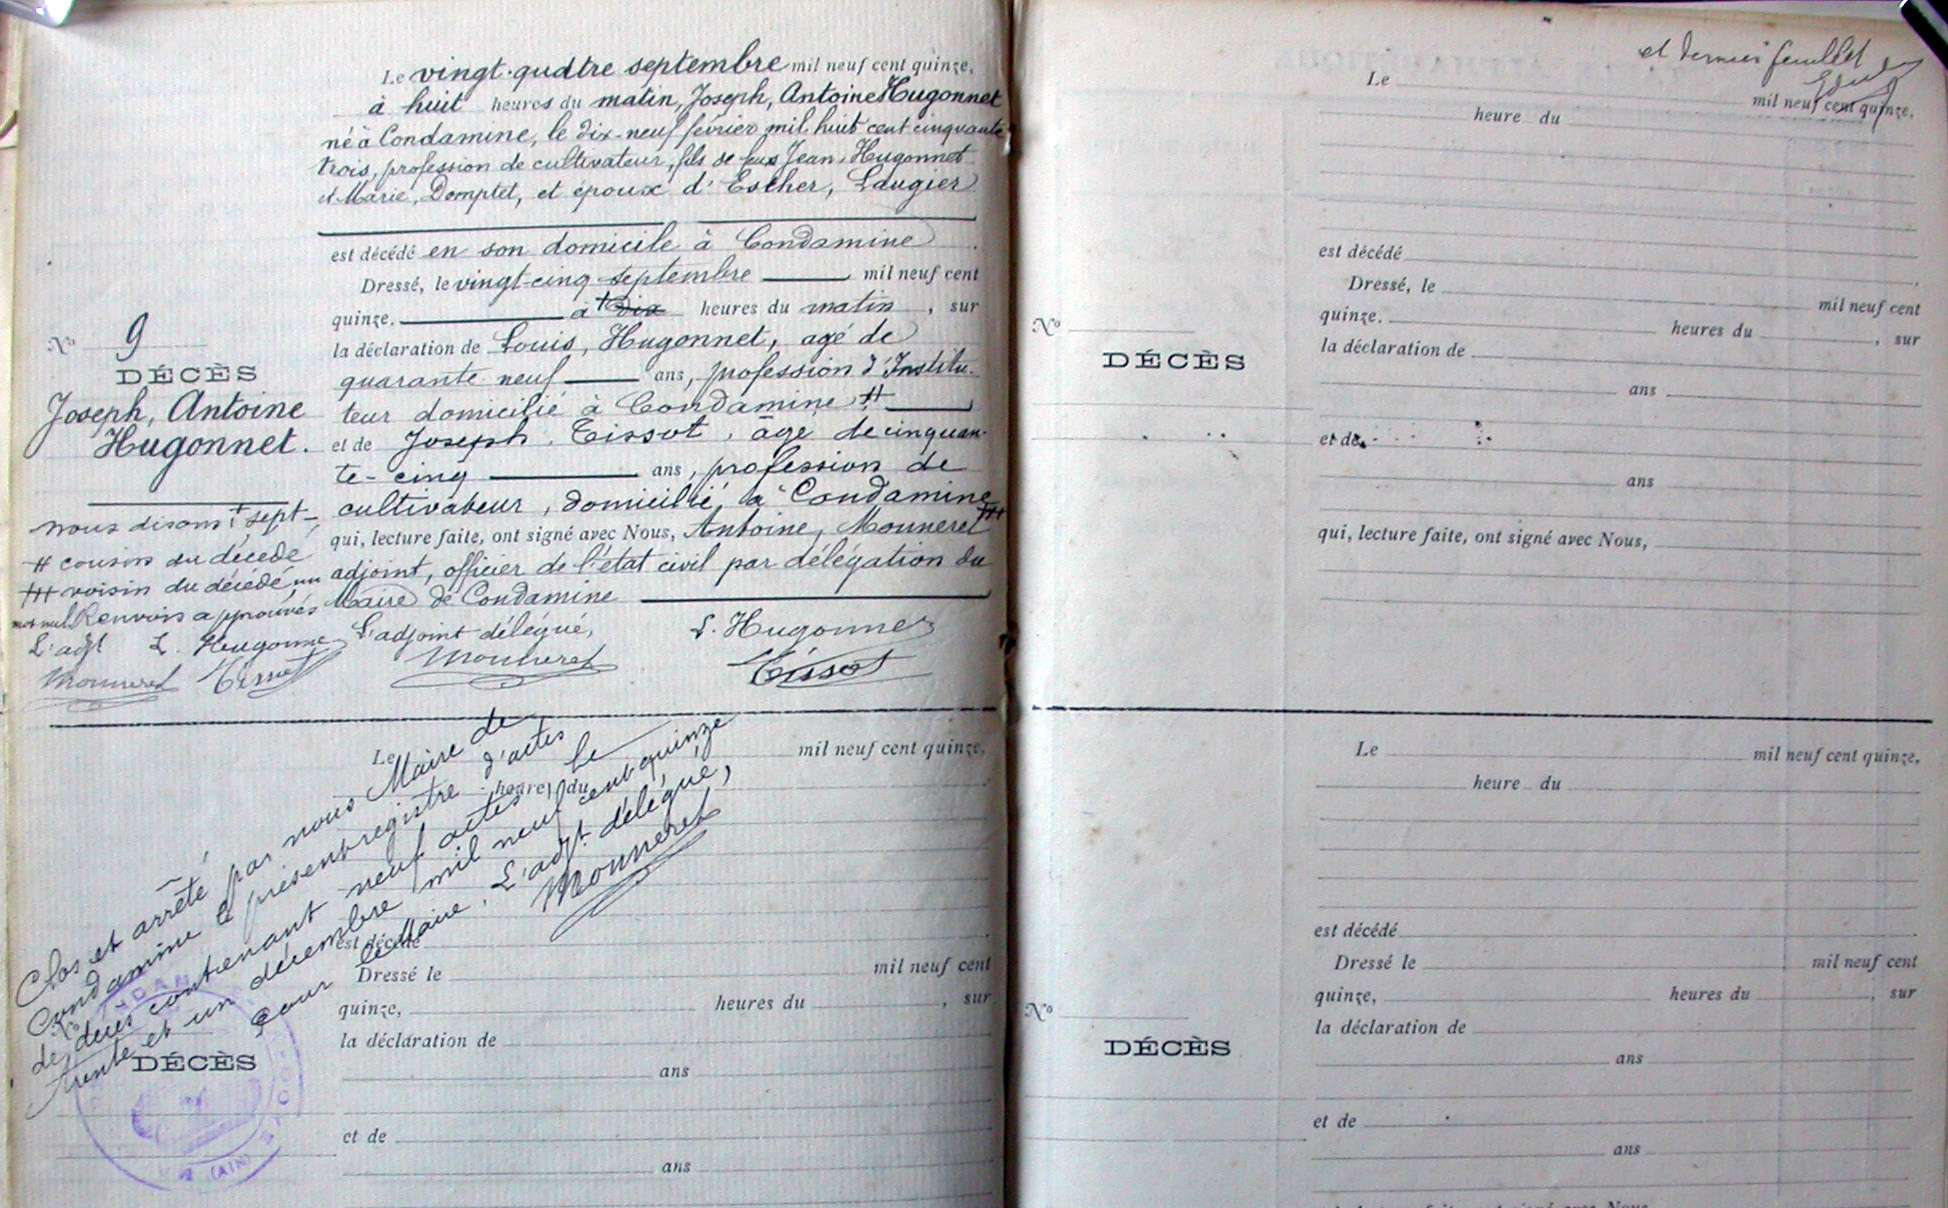 Le vingt-quatre septembre mil neuf cent quinze,
à huit heures du matin, Joseph, Antoine Hugonnet
né à Condamine, le dix-neuf février mil huit cent cinquante
trois, profession de cultivateur, fils de feus Jean, Hugonnet
et Marie, Domptet, et époux d'Esther, Laugier
est décédé en son domicile à Condamine
Dressé, le vingt-cinq septembre mil neuf cent
quinze. à + dix heures du matin, sur
la déclaration de Louis, Hugonnet, agé de
quarante neuf ans, profession d'Institu-
teur domicilié à Condamine #
et de Joseph, Tissot, âgé de cinquan-
te-cinq ans, profession de
cultivateur, domicilié à Condamine ###
qui, lecture faite, ont signé avec Nous, Antoine, Mouneret
adjoint, officier de l'état civil par délégation du
Maire de Condamine
L'adjoint délégué, L. Hugonnet
Mouneret Tissot
No 9
DÉCÈS
Joseph, Antoine
Hugonnet.
nous disons: + sept
# cousin du décédé
### voisin du décédé, un
mot nul Renvois approuvés
L'adjt L. Hugonnet
Mouneret Tissot
Le mil neuf cent quinze,
heure du
est décédé
Dressé le mil neuf cent
quinze, heures du , sur
la déclaration de
ans
et de
ans
No
DÉCÈS
Clos et arrêté par nous Maire de
Condamine le présent registre d'actes
de décès contenant neuf actes le
trente et un décembre mil neuf cent quinze
Pour le Maire, L'adjt délégué,
Mouneret
(AIN)
et dernier feuillet
Le mil neuf cent quinze,
heure du
est décédé
Dressé, le mil neuf cent
quinze. heures du , sur
la déclaration de
ans
et de
ans
qui, lecture faite, ont signé avec Nous,
No
DÉCÈS
Le mil neuf cent quinze,
heure du
est décédé
Dressé le mil neuf cent
quinze, heures du , sur
la déclaration de
ans
et de
ans
No
DÉCÈS